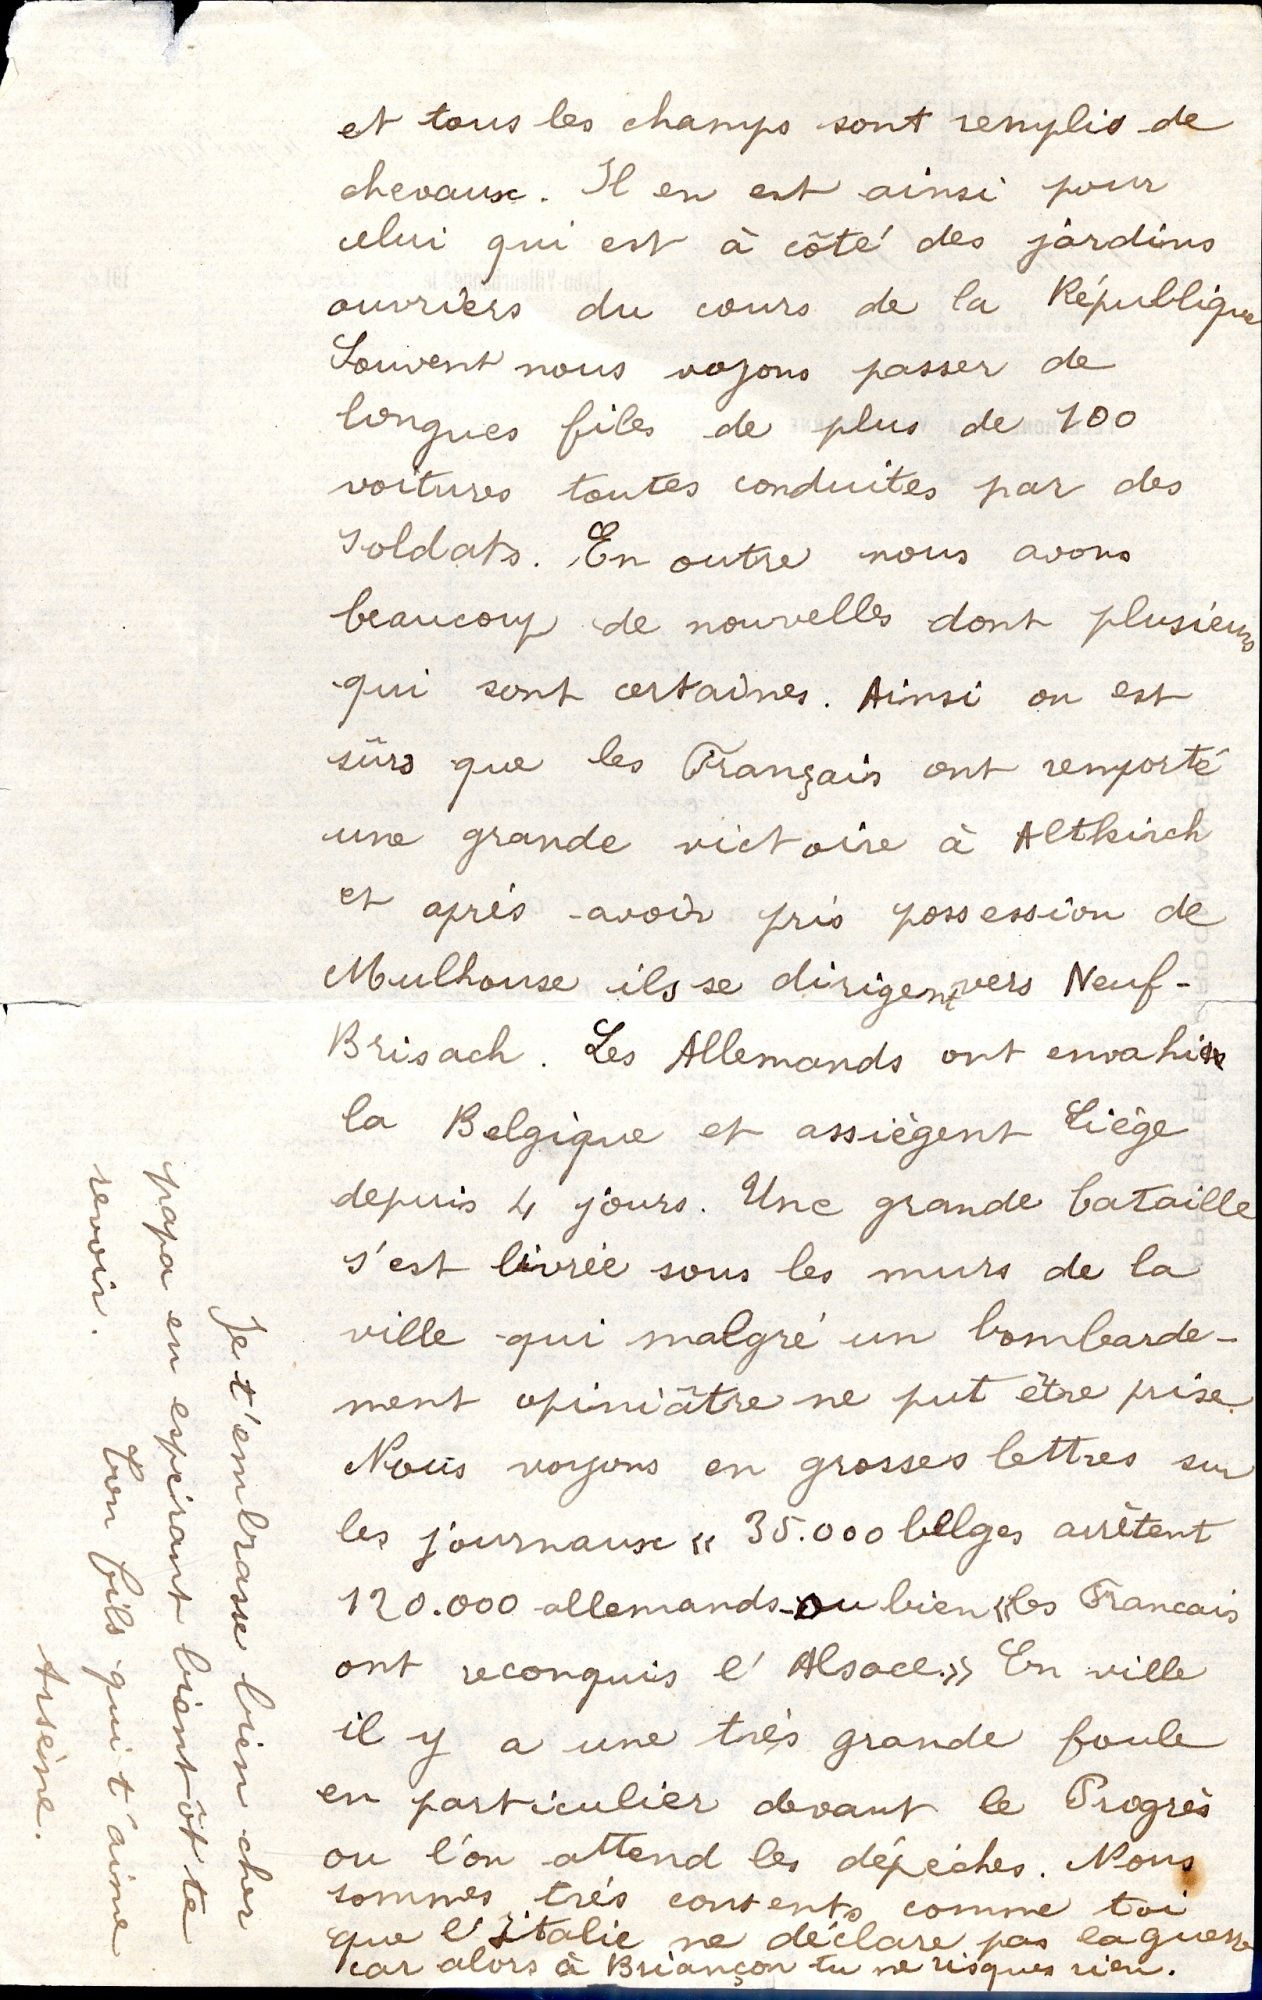 et tous les champs sont remplis de
chevaux. Il en est ainsi pour
celui qui est à côté des jardins
ouvriers du cours de la République
Souvent nous voyons passer de
longues files de plus de 100
voitures toutes conduites par des
soldats. En outre nous avons
beaucoup de nouvelles dont plusieurs
qui sont certaines. Ainsi on est
sûrs que les Français ont remporté
une grande victoire à Altkirch
et après avoir pris possession de
Mulhouse ils se dirigent vers Neuf-
Brisach. Les Allemands ont envahi
la Belgique et assiègent Liège
depuis 4 jours. Une grande bataille
s'est livrée sous les murs de la
ville qui malgré un bombarde-
ment opiniâtre ne put être prise.
Nous voyons en grosses lettres sur
les journaux « 35.000 belges arrêtent
120.000 allemands ou bien « les Francais
ont reconquis l'Alsace.» En ville
il y a une très grande foule
en particulier devant le Progrès
ou l'on attend les dépêches. Nous
sommes très contents comme toi
que l'Italie ne déclare pas la guerre
car alors à Briançon tu ne risques rien.
Je t'embrasse bien cher
papa en espérant bientôt te
revoir. Ton fils qui t'aime
Arsène.